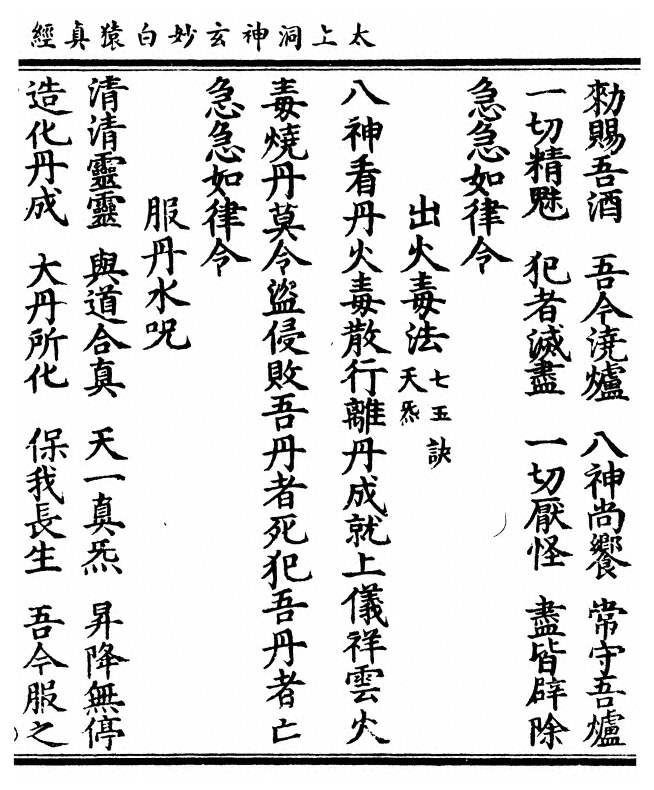 太上洞神玄妙白猿真經
勑賜吾酒 吾今澆爐 八神尚饗 常守吾爐
一切精魅 犯者滅盡 一切厭怪 盡皆辟除
急急如律令
出火毒法 七五訣 天炁
八神看丹火毒散行離丹成就上儀祥雲火
毒燒丹莫令盜侵敗吾丹者死犯吾丹者亡
急急如律令
服丹水呪
清清靈靈 與道合真 天一真炁 昇降無停
造化丹成 大丹所化 保我長生 吾今服之